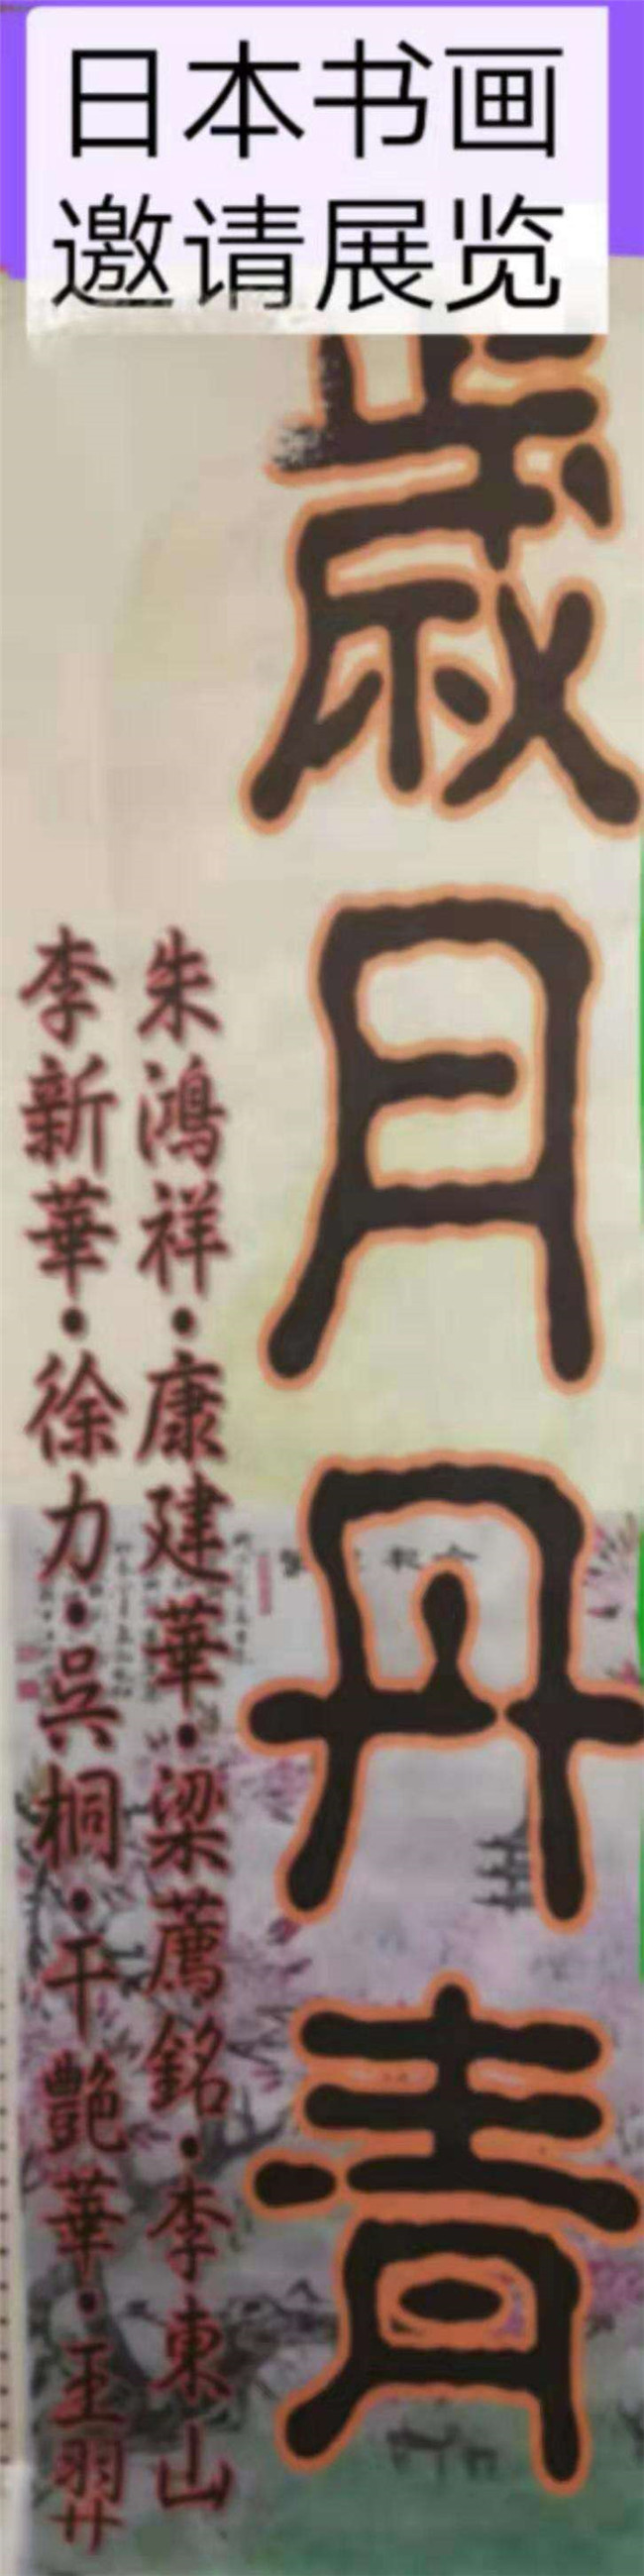 日本书画
邀请展览
歲月丹青
朱鴻祥·康建華·梁薦銘·李東山
李新華·徐力·吳桐·干艷華·王羿